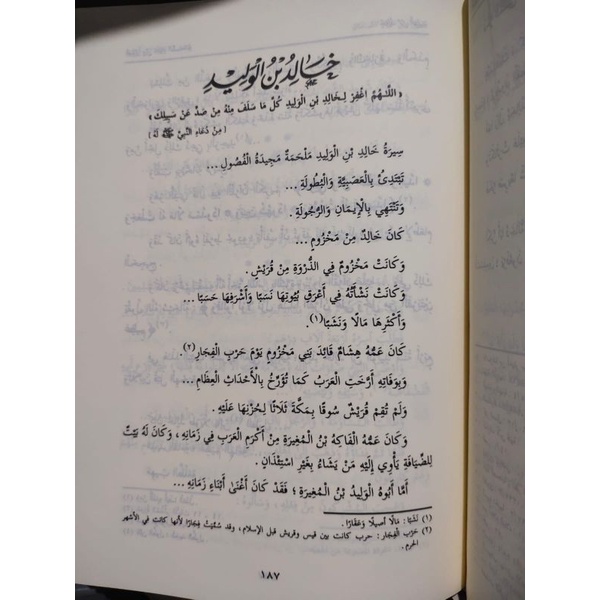 خَالِدُ بْنُ الْوَلِيدِ
« اللَّهُمَّ اغْفِرْ لِخَالِدِ بْنِ الْوَلِيدِ كُلَّ مَا سَلَفَ مِنْهُ مِنْ صَدٍّ عَنْ سَبِيلِكَ »
[ مِنْ دُعَاءِ النَّبِيِّ ﷺ لَهُ ]
سِيرَةُ خَالِدِ بْنِ الْوَلِيدِ مَلْحَمَةٌ مَجِيدَةُ الْفُصُولِ ...
تَبْتَدِئُ بِالْعَصَبِيَّةِ وَالْبُطُولَةِ ...
وَتَنْتَهِي بِالْإِيمَانِ وَالرُّجُولَةِ .
كَانَ خَالِدٌ مِنْ مَخْزُومٍ ...
وَكَانَتْ مَخْزُومٌ فِي الذُّرْوَةِ مِنْ قُرَيْشٍ .
وَكَانَتْ نَشْأَتُهُ فِي أَعْرَقِ بُيُوتِهَا نَسَبًا وَأَشْرَفِهَا حَسَبًا ...
وَأَكْثَرِهَا مَالًا وَنَشَبًا(١) .
كَانَ عَمُّهُ هِشَامٌ قَائِدَ بَنِي مَخْزُومٍ يَوْمَ حَرْبِ الْفِجَارِ(٢) .
وَبِوَفَاتِهِ أَرَّخَتِ الْعَرَبُ كَمَا تُؤَرِّخُ بِالْأَحْدَاثِ الْعِظَامِ ...
وَلَمْ تُقِمْ قُرَيْشٌ سُوقًا بِمَكَّةَ ثَلَاثًا لِحُزْنِهَا عَلَيْهِ .
وَكَانَ عَمُّهُ الْفَاكِهُ بْنُ الْمُغِيرَةِ مِنْ أَكْرَمِ الْعَرَبِ فِي زَمَانِهِ ، وَكَانَ لَهُ بَيْتٌ
لِلضِّيَافَةِ يَأْوِي إِلَيْهِ مَنْ يَشَاءُ بِغَيْرِ اسْتِئْذَانٍ .
أَمَّا أَبُوهُ الْوَلِيدُ بْنُ الْمُغِيرَةِ ؛ فَقَدْ كَانَ أَغْنَى أَبْنَاءِ زَمَانِهِ ...
(١) نَشَبًا : مَالًا أَصِيلًا وَعَقَارًا .
(٢) حَرْب الْفِجَار : حرب كانت بين قيس وقريش قبل الإسلام، وقد سُمِّيَتْ فِجَارًا لأنها كانت في الأشهر
الحرم .
١٨٧